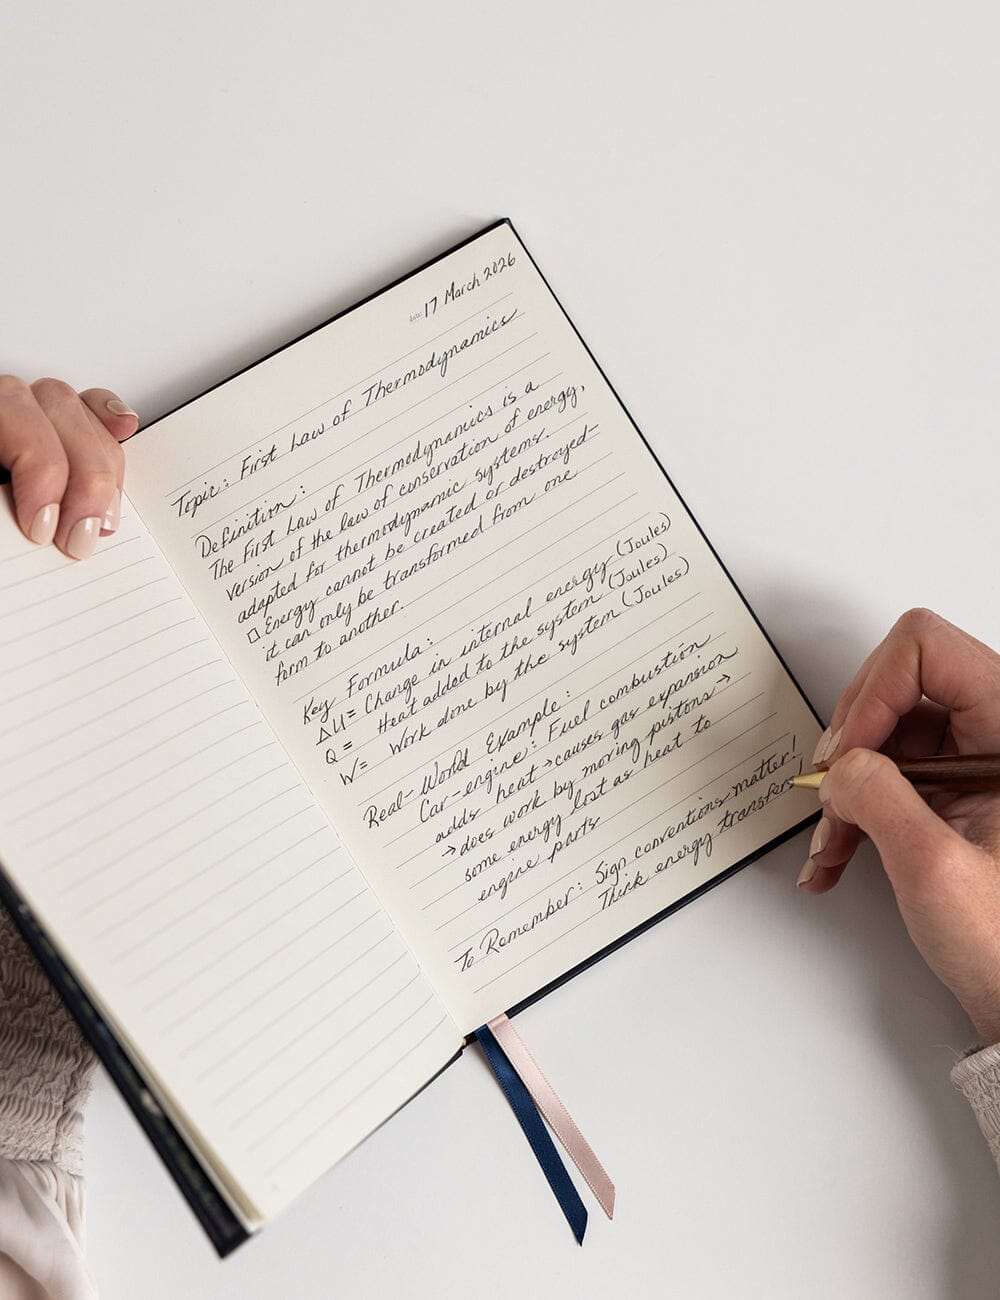 date: 17 March 2026
Topic: First Law of Thermodynamics
Definition:
The First Law of Thermodynamics is a
version of the law of conservation of energy,
adapted for thermodynamic systems.
□ Energy cannot be created or destroyed-
it can only be transformed from one
form to another.
Key Formula:
ΔU = Change in internal energy (Joules)
Q = Heat added to the system (Joules)
W = Work done by the system (Joules)
Real-World Example:
Car-engine: Fuel combustion
adds heat → causes gas expansion
→ does work by moving pistons →
some energy lost as heat to
engine parts
To Remember: Sign conventions matter!
Think energy transfers!